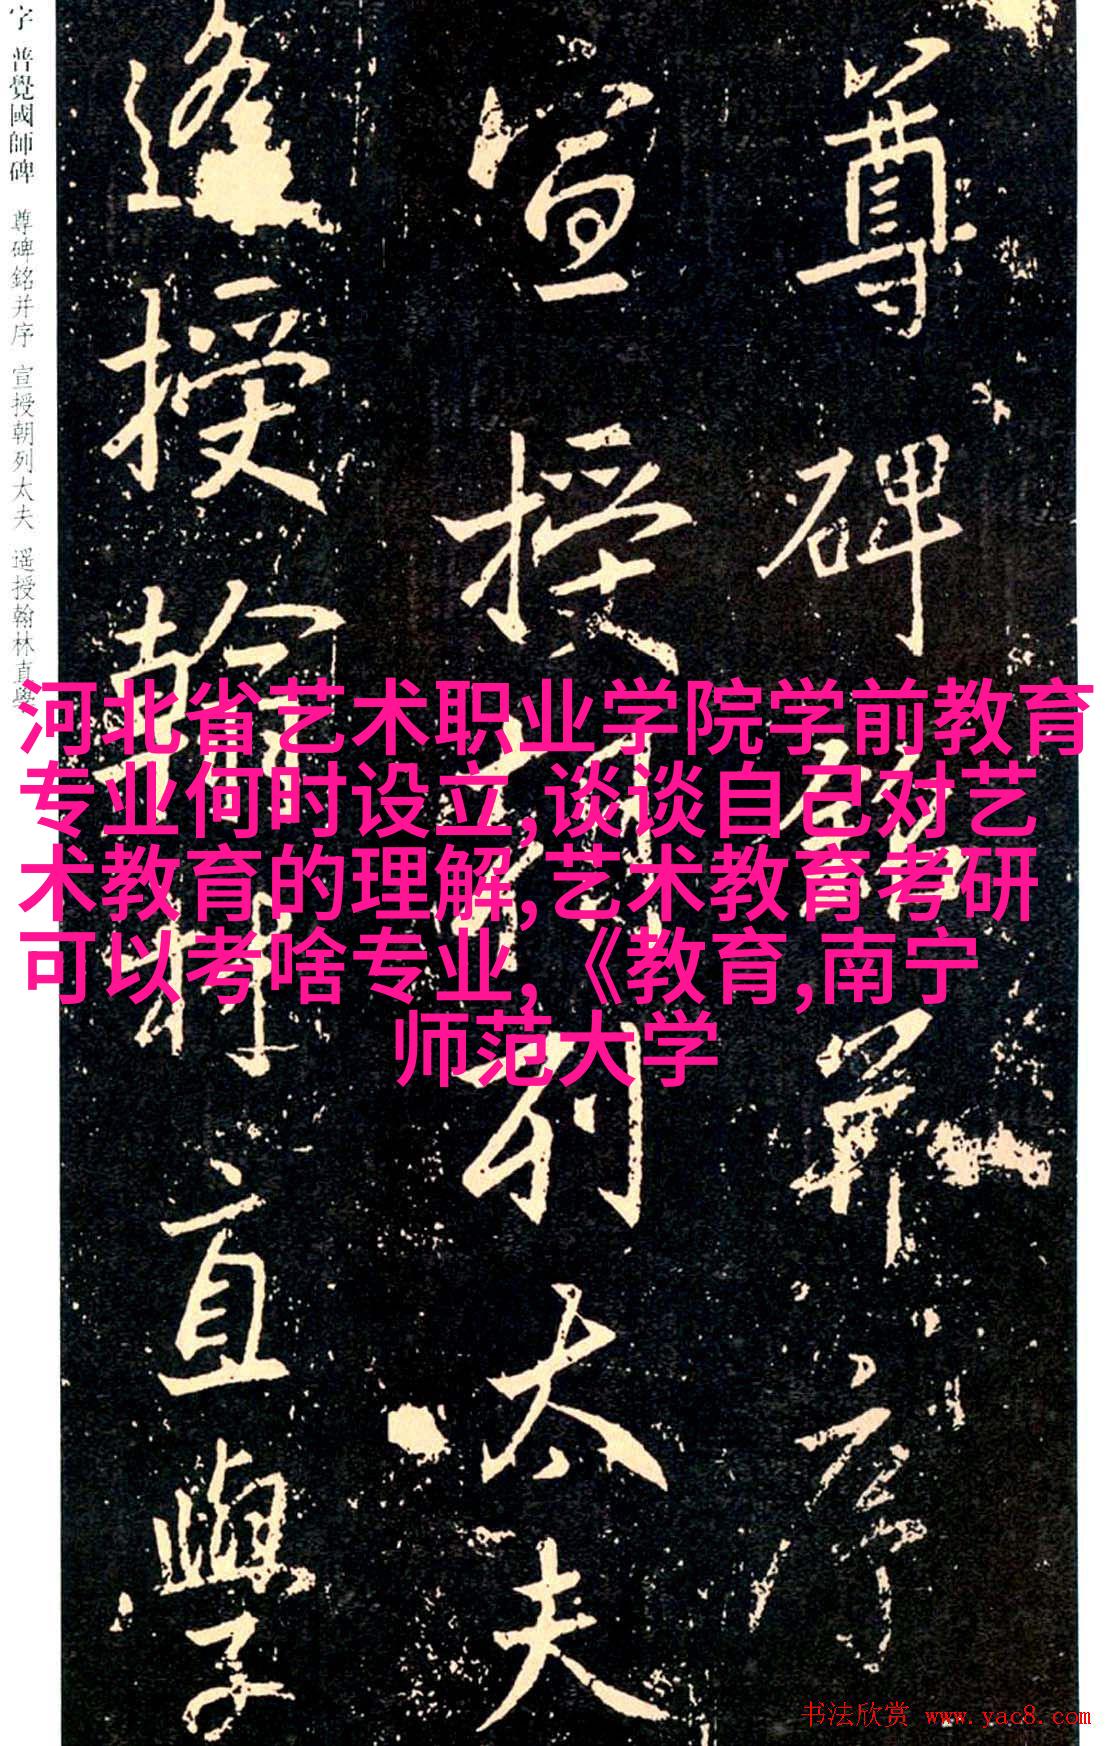 字 普覺國師碑 尊碑銘并序 宣授朝列太夫 遥授翰林直學
尊碑銘并序
宣授朝列太夫
遙授翰林直學
河北省艺术职业学院学前教育
专业何时设立,谈谈自己对艺
术教育的理解,艺术教育考研
可以考啥专业,《教育,南宁
师范大学
书法欣赏 www.yac8.com